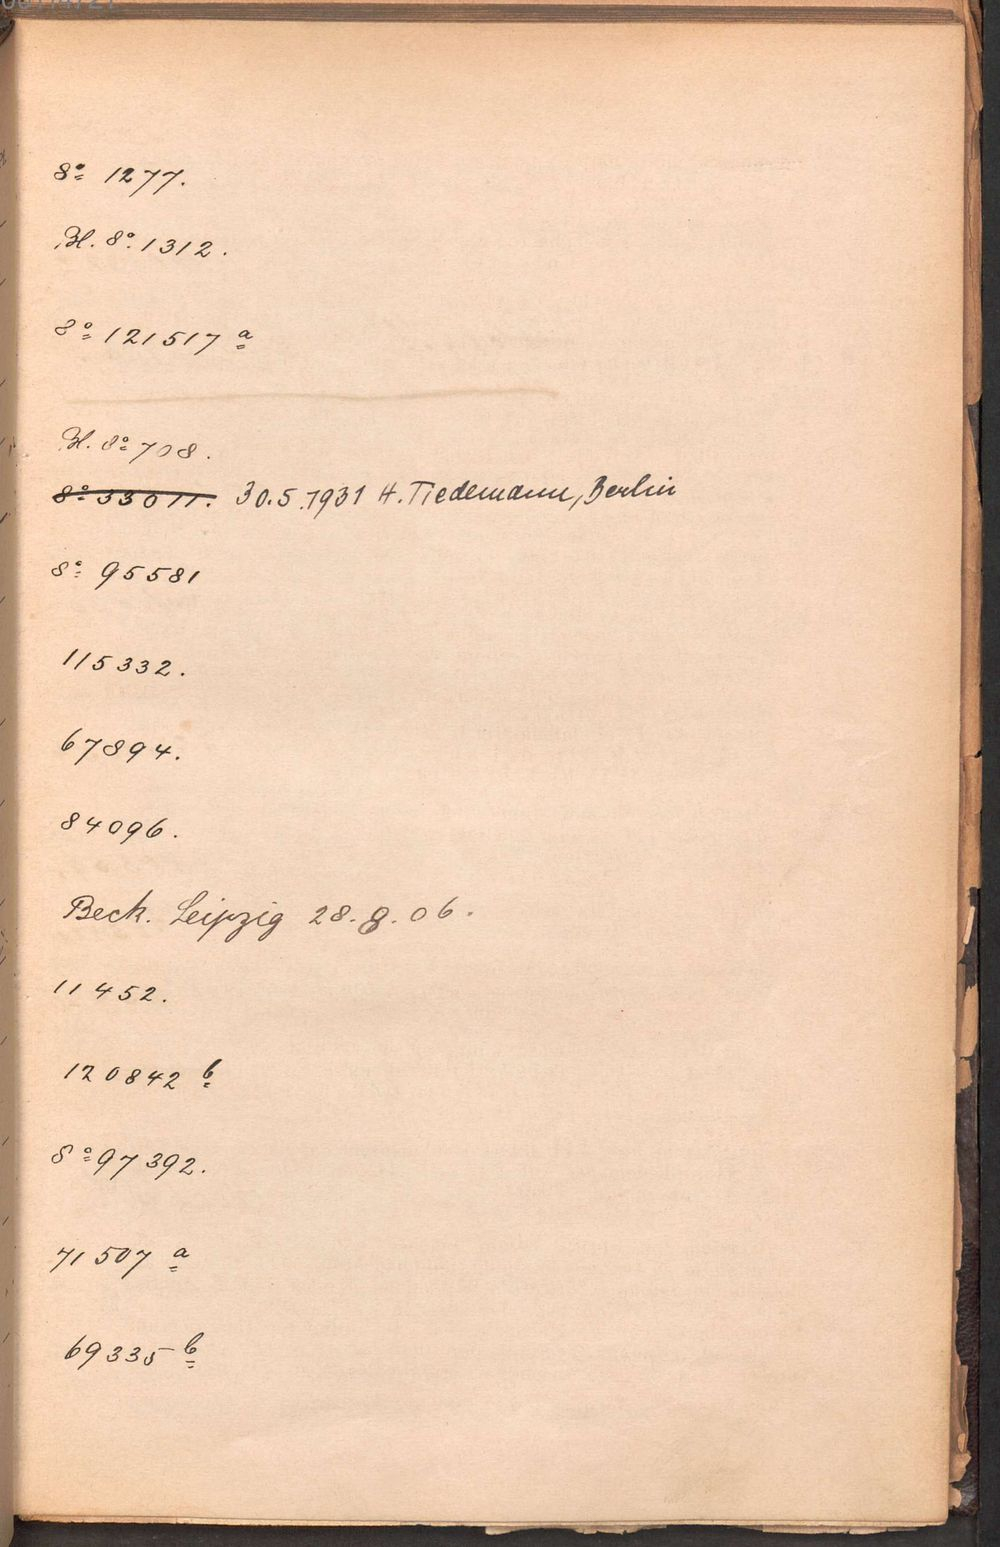 8º 1277.
Bl. 8º. 1312.
8º 121517 a
Bl. 8º 708.
8º 33011. 30.5.1931 H. Tiedemann, Berlin
8º 95581
115332.
67894.
84096.
Beck. Leipzig 28.8.06.
11452.
120842 b
8º 97392.
71507 a
69335 b